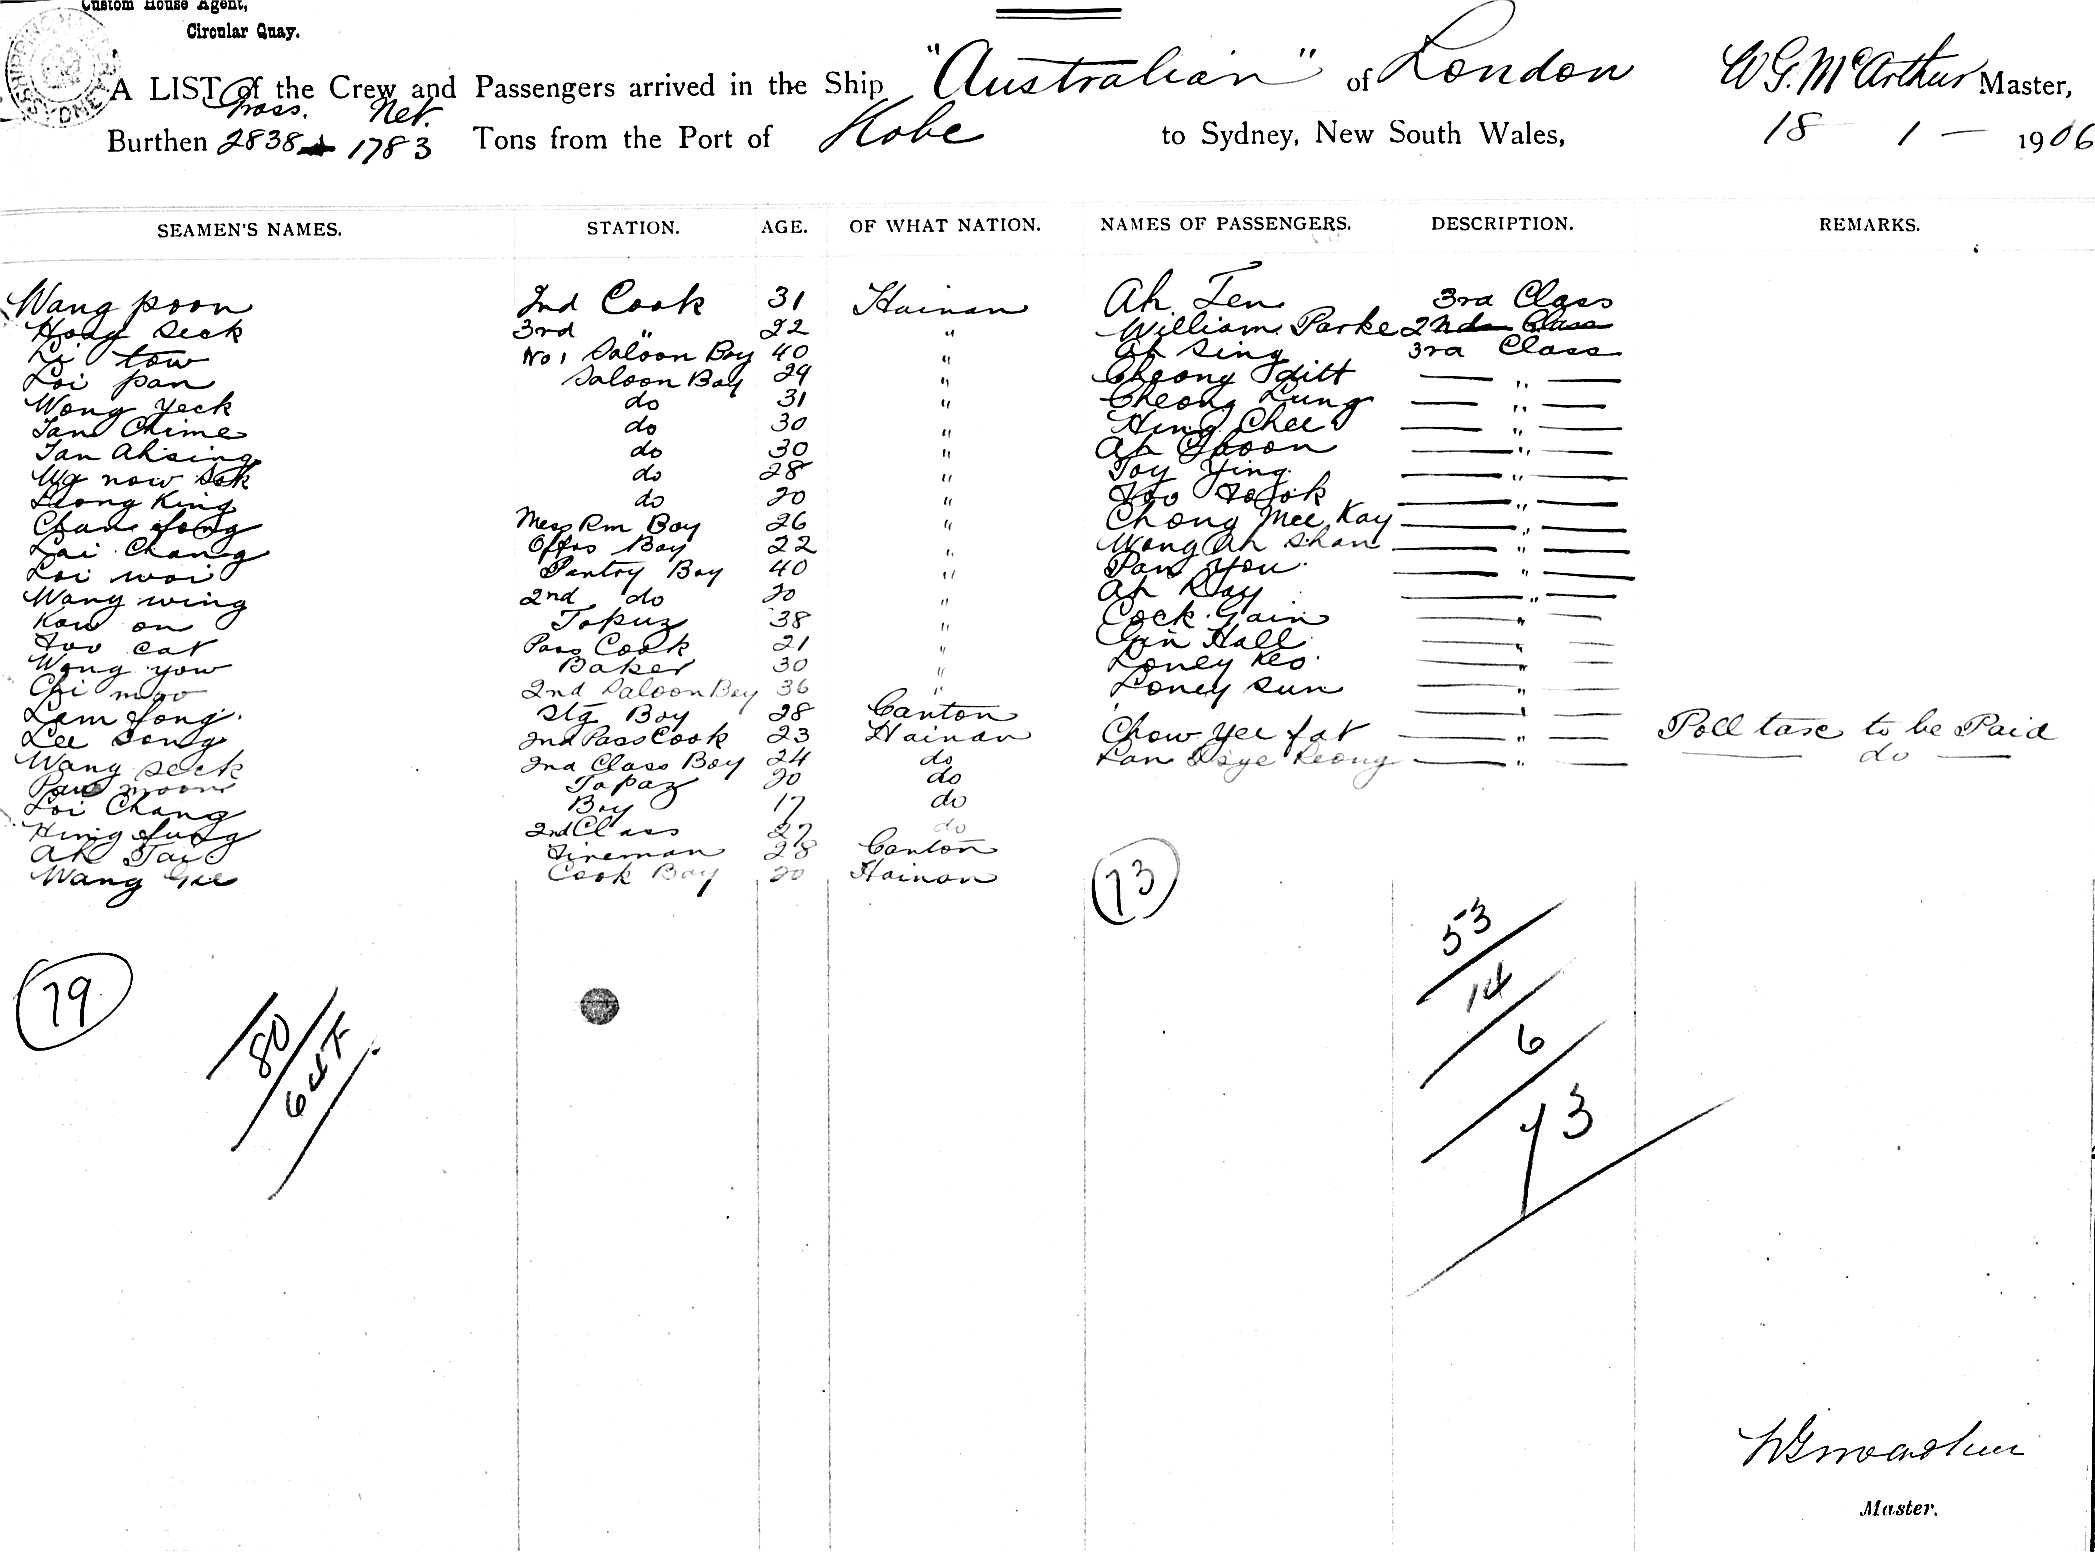 Custom House Agent,
Circular Quay.
A LIST of the Crew and Passengers arrived in the Ship "Australian" of London W G. McArthur Master,
Gross. Net.
Burthen 2838 1783 Tons from the Port of Kobe to Sydney, New South Wales, 18 - 1 - 1906
SEAMEN'S NAMES. STATION. AGE. OF WHAT NATION. NAMES OF PASSENGERS. DESCRIPTION. REMARKS.
Wang poon 2nd Cook 31 Hainan Ah Ten 3rd Class
Hong Seck 3rd " 22 " William Parke 2nd Class
Li tow No 1 Saloon Boy 40 " Ah Sing 3rd Class
Loi pan Saloon Boy 29 " Cheong Ditt — " —
Wong Yeck do 31 " Cheong Lung — " —
Tan Chime do 30 " Hing Chee — " —
Tan Ahsing do 30 " Ah Choon — " —
Ug now Sok do 28 " Toy Ying — " —
Leong King do 20 " Foo — " —
Chan fong Mess Rm Boy 26 " Chong Mee Kay — " —
Lai Chang Offrs Boy 22 " Wong Ah Shan — " —
Loi woi Pantry Boy 40 " Pan You — " —
Wang wing 2nd do 20 " Ah Day — " —
Kow on Topuz 38 " Cock Gain — " —
Foo cat Pass Cook 21 " Gin Hall — " —
Wong yow Baker 30 " Loney Keo — " —
Chi moo 2nd Saloon Boy 36 " Loney Sun — " —
Lam fong Stg Boy 28 Canton — " —
Lee Song 2nd Pass Cook 23 Hainan Chow Yee fat — " — Poll tax to be Paid
Wang Seck 2nd Class Boy 24 do Kan Keong — " — — do —
Pan moon Topaz 20 do
Loi Chang Boy 17 do
Hing fung 2nd Class 27 do
Ah Tai Fireman 28 Canton
Wang Gee Cook Boy 20 Hainan
73
53
14
6
73
79
80
64
Master.